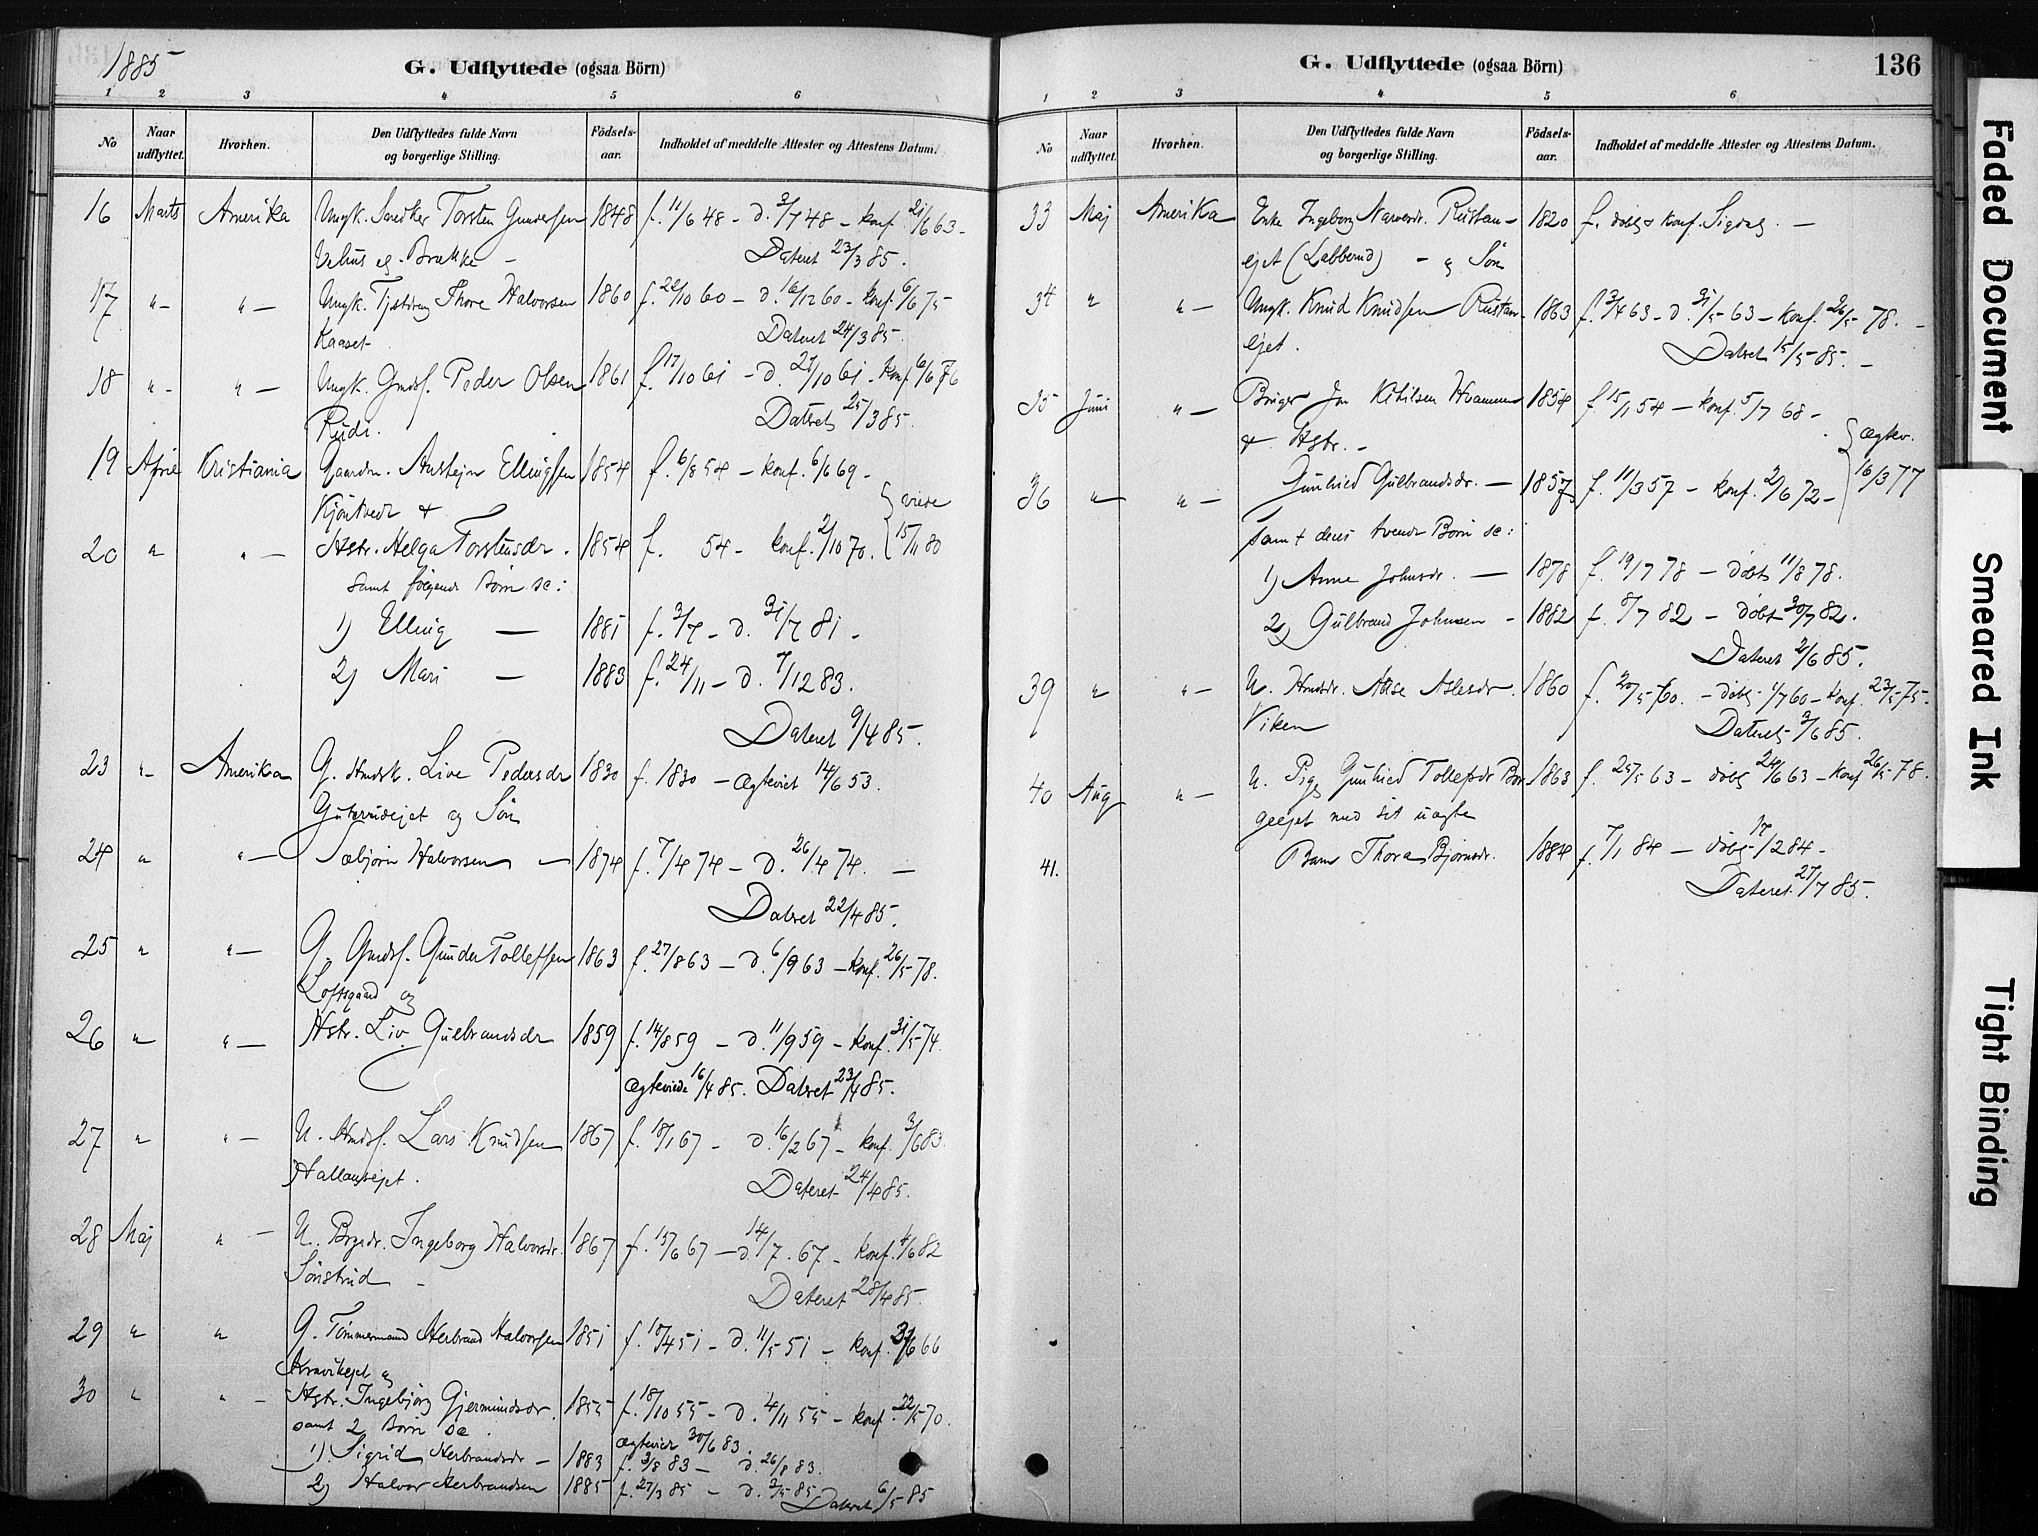 1885
G. Udflyttede (ogsaa Börn)
1 2 3 4 5 6
No Naar udflyttet. Hvorhen. Den Udflyttedes fulde Navn og borgerlige Stilling. Födsels-aar. Indholdet af meddelte Attester og Attestens Datum.
16 Marts Amerika Ungk. Snedker Torsten Gundersen 1848 f. 11/6 48 – d. 2/7 48 – konf. 21/6 63 –
Brække – Dateret 23/3 85.
17 " – " – Ungk. Thore Halvorsen 1860 f. 22/10 60 – d. 16/12 60 – konf. 6/6 75
Kaaset Dateret 24/3 85.
18 " – " – Ungk. Gmdsf. Peder Olsen 1861 f. 17/10 61 – d. 27/10 61 – konf. 6/6 76
Rudi. Dateret 25/3 85.
19 April Kristiania Gaardm. Anstejn Ellingsen 1854 f. 6/8 54 – konf. 6/6 69 –
Kjöntvedt & viede
20 " " – Hstr. Helga Torstensdr. 1854 f. 54 – konf. 2/10 70. 15/11 80
samt følgende Børn se:
1) Elling — 1881 f. 3/7 – d. 31/7 81 –
2) Mari — 1883 f. 24/11 – d. 7/12 83.
Dateret 9/4 85.
23 " – Amerika G. Hmdsk. Live Pedersdr 1830 f. 1830 – Ægteviet 14/6 53.
og Søn
24 " " – Halvorsen — 1874 f. 7/4 74 – d. 26/4 74. —
Dateret 22/4 85.
25 " " – G. Gmdsf. Gunder Tollefsen 1863 f. 27/8 63 – d. 6/9 63 – konf. 26/5 78.
Loftsgaard og
26 " " – Hstr. Liv Gulbrandsdr 1859 f. 14/8 59 – d. 11/9 59 – konf. 31/5 74.
Ægteviede 16/4 85. Dateret 23/4 85.
27 " " – U. Hmdsf. Lars Knudsen 1867 f. 18/1 67 – d. 16/2 67 – konf. 3/6 83.
Hallansejet. Dateret 24/4 85.
28 Maj " – U. Ingeborg Halvorsdr. 1867 f. 15/6 67 – d. 14/7. 67 – konf. 4/6 82
Sönstrud – Dateret 28/4 85.
29 " " G. Tömmermand Herbrand Halvorsen 1851 f. 18/4 51 – d. 11/5 51 – konf. 6 66
og
30 " " – Hstr. Ingebjörg Gjermundsdr. 1855 f. 18/10 55 – d. 4/11 55 – konf. 22/5 70.
samt 2 Børn se Ægteviet 30/6 83
1) Sigrid Herbrandsdr – 1883 f. 3/8 83 – d. 26/8 83.
2) Halvor Herbrandsen 1885 f. 27/3 85 – d. 3/5 85
Dateret 6/5 85
G. Udflyttede (ogsaa Börn) 136
1 2 3 4 5 6
No Naar udflyttet. Hvorhen. Den Udflyttedes fulde Navn og borgerlige Stilling. Födsels-aar. Indholdet af meddelte Attester og Attestens Datum.
33 Maj Amerika Enke Ingeborg Narvesdr. Rustan- 1820 f. døbt & konf. Sigdal. —
ejet (Labberud) – og Søn
34 " " – Ungk. Knud Knudsen Rustan- 1863 f. 3/4 63 – d. 31/5 63 – konf. 26/5 78. –
ejet. Dateret 15/5 85. –
35 Juni " – Jon Kittilsen 1854 f. 15/1 54 – konf. 5/7 68 –
& Hstr. – ægtev.
36 " " – Gunhild Gulbrandsdr. — 1857 f. 11/3 57 – konf. 2/6 72 – 16/3 77
samt deres tvende Børn se:
1) Anne Johnsdr. — 1878 f. 19/7 78 – døbt 11/8 78.
2) Gulbrand Johnsen – 1882 f. 8/7 82 – døbt 30/7 82.
Dateret 2/6 85.
39 " " – U. Aslesdr. 1860 f. 20/5 60. – døbt 1/7 60 – konf. 23/5 75.
Viken Dateret 3/6 85.
40 Aug " – U. Pige Gunhild Tollefsdr Bor 1863 f. 25/5 63 – døbt 24/6 63 – konf 26/5 78.
geejet med sit uægte
41. Barn Thora Bjørnsdr. 1884 f. 7/1 84 – døbt 17/2 84 –
Dateret 27/7 85.
Faded Document
Smeared Ink
Tight Binding